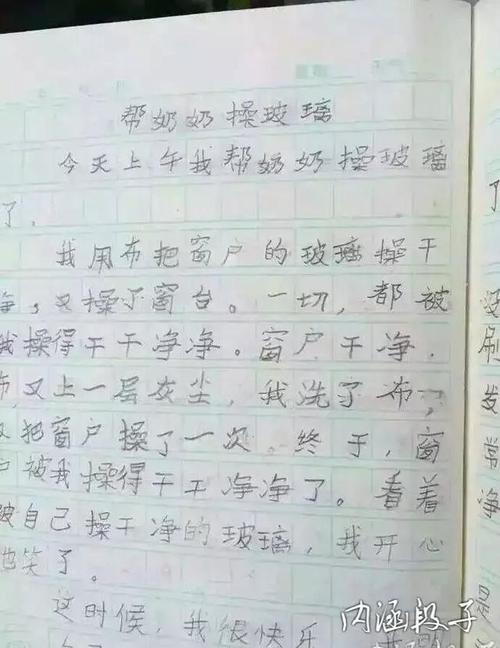 帮奶奶操玻璃
今天上午我帮奶奶操玻璃
了。
我用布把窗户的玻璃操干
净,又操了窗台。一切,都被
我操得干干净净。窗户干净,
布,又上一层灰尘,我洗了布,
又把窗户操了一次。终于,窗
户被我操得干干净净了。看着
被自己操干净的玻璃,我开心
地笑了。
这时候,我很快乐
内涵段子
了
没
刷
发
常
净